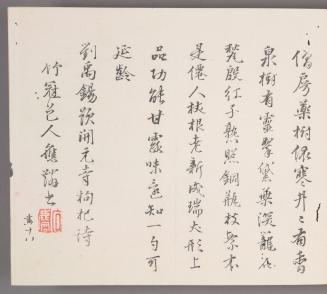 僧房藥樹依寒井々有香
泉樹有靈翠黛葉深籠石
甃殷紅子熟照銅瓶枝繁本
是僊人杖根老新成瑞犬形上
品功能甘露味還知一勺可
延齡
劉禹錫詠開元寺枸杞詩
竹冠人書